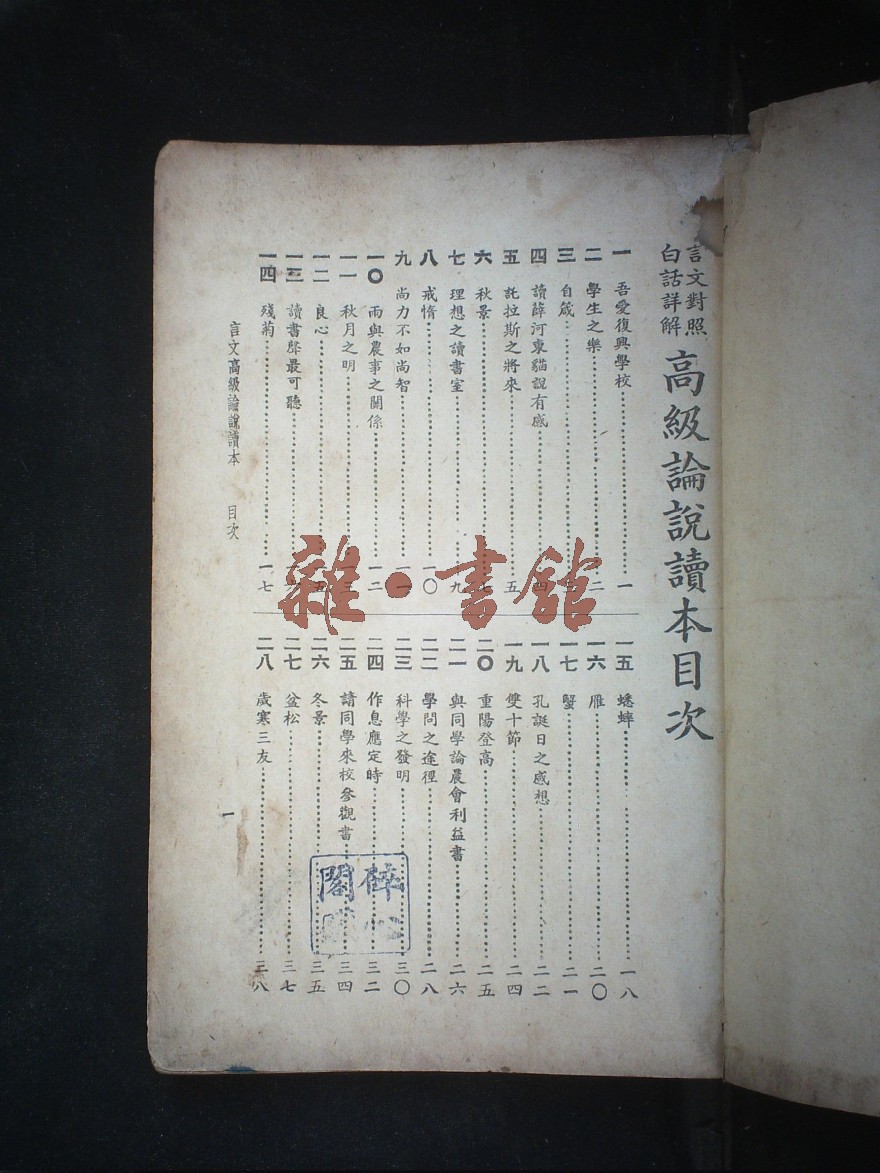 言文對照
白話詳解
高級論說讀本目次
一 吾愛復興學校 一
二 學生之樂 二
三 自箴
四 讀薛河東貓說有感 四
五 託拉斯之將來 五
六 秋景 七
七 理想之讀書室 九
八 戒惰 一〇
九 尚力不如尚智 一一
一〇 雨與農事之關係 一二
一一 秋月之明 一三
一二 良心
一三 讀書聲最可聽
一四 殘菊 一七
一五 蟋蟀 一八
一六 雁 二〇
一七 蟹 二一
一八 孔誕日之感想 二二
一九 雙十節 二四
二〇 重陽登高 二五
二一 與同學論農會利益書 二六
二二 學問之途徑 二八
二三 科學之發明 三〇
二四 作息應定時 三二
二五 請同學來校參觀書 三四
二六 冬景 三五
二七 盆松 三七
二八 歲寒三友 三八
言文高級論說讀本 目次
一
雜·書館